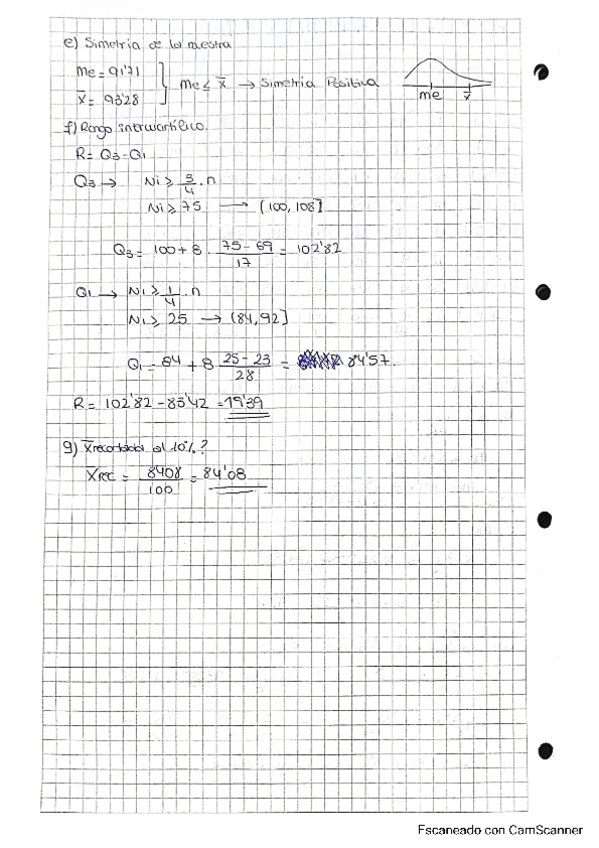 e) Simetria de la muestra
Me = 91'71
x̄ = 93'28
Me ≤ x̄ → Simetria Positiva
me x̄
f) Rango intercuartílico.
R = Q3 - Q1
Q3 → Ni ≥ 3/4 · n
Ni ≥ 75 → (100, 108]
Q3 = 100 + 8 · (75 - 69)/17 = 102'82
Q1 → Ni ≥ 1/4 · n
Ni ≥ 25 → (84, 92]
Q1 = 84 + 8 · (25 - 23)/28 = 84'57.
R = 102'82 - 83'42 = 19'39
g) x̄ recortada al 10%?
x̄rec = 8408/100 = 84'08
Escaneado con CamScanner